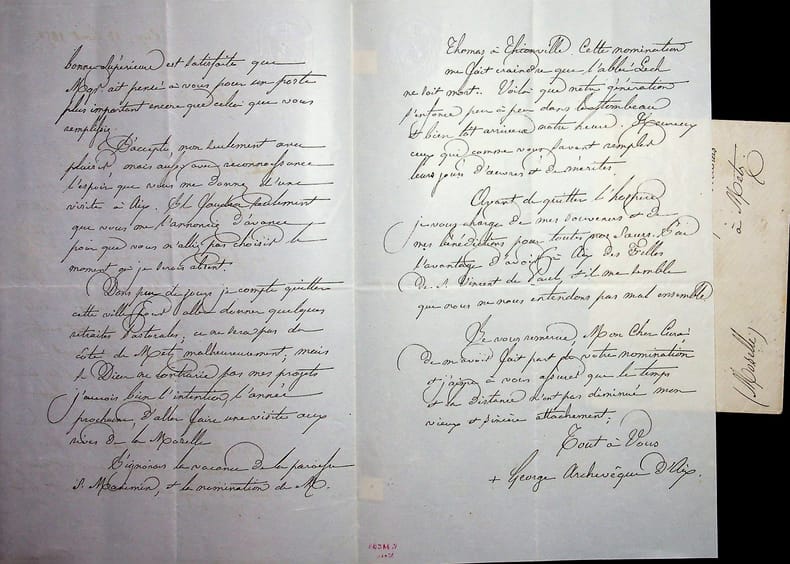 bonne Supérieure est satisfaite que
Mgr ait pensé à vous pour un poste
plus important encore que celui que vous
remplissez.
J'accepte, non seulement avec
plaisir, mais aussi avec reconnaissance
l'espoir que vous me donnez d'une
visite à Aix. Il faudra seulement
que vous me l'annonciez d'avance
pour que vous n'alliez pas choisir le
moment où je serais absent.
Dans peu de jours je compte quitter
cette ville pour aller donner quelques
retraites Pastorales; ce ne sera pas du
côté de Metz malheureusement; mais
si Dieu ne contrarie pas mes projets
j'aurois bien l'intention, l'année
prochaine, d'aller faire une visite aux
rives de la Moselle
J'ignorais la vacance de la paroisse
St Maximin, et la nomination de M.
Thomas à Thionville. Cette nomination
me fait craindre que l'abbé
ne soit mort. Voilà que notre génération
s'enfonce peu à peu dans le tombeau
et bien tôt arrivera notre heure. Heureux
ceux qui comme vous savent remplir
leurs jours d'œuvres et de mérites.
Avant de quitter l'hospice
je vous charge de mes souvenirs et de
mes bénédictions pour toutes vos Sœurs. J'ai
l'avantage d'avoir à Aix des Filles
de St Vincent de Paul, et il me semble
que nous ne nous entendons pas mal ensemble
Je vous remercie, Mon Cher Curé
de m'avoir fait part de votre nomination
et j'aime à vous assurer que le temps
et la distance n'ont pas diminué mon
vieux et sincère attachement;
Tout à Vous
+ George Archevêque D'Aix.
à Metz
(Moselle)